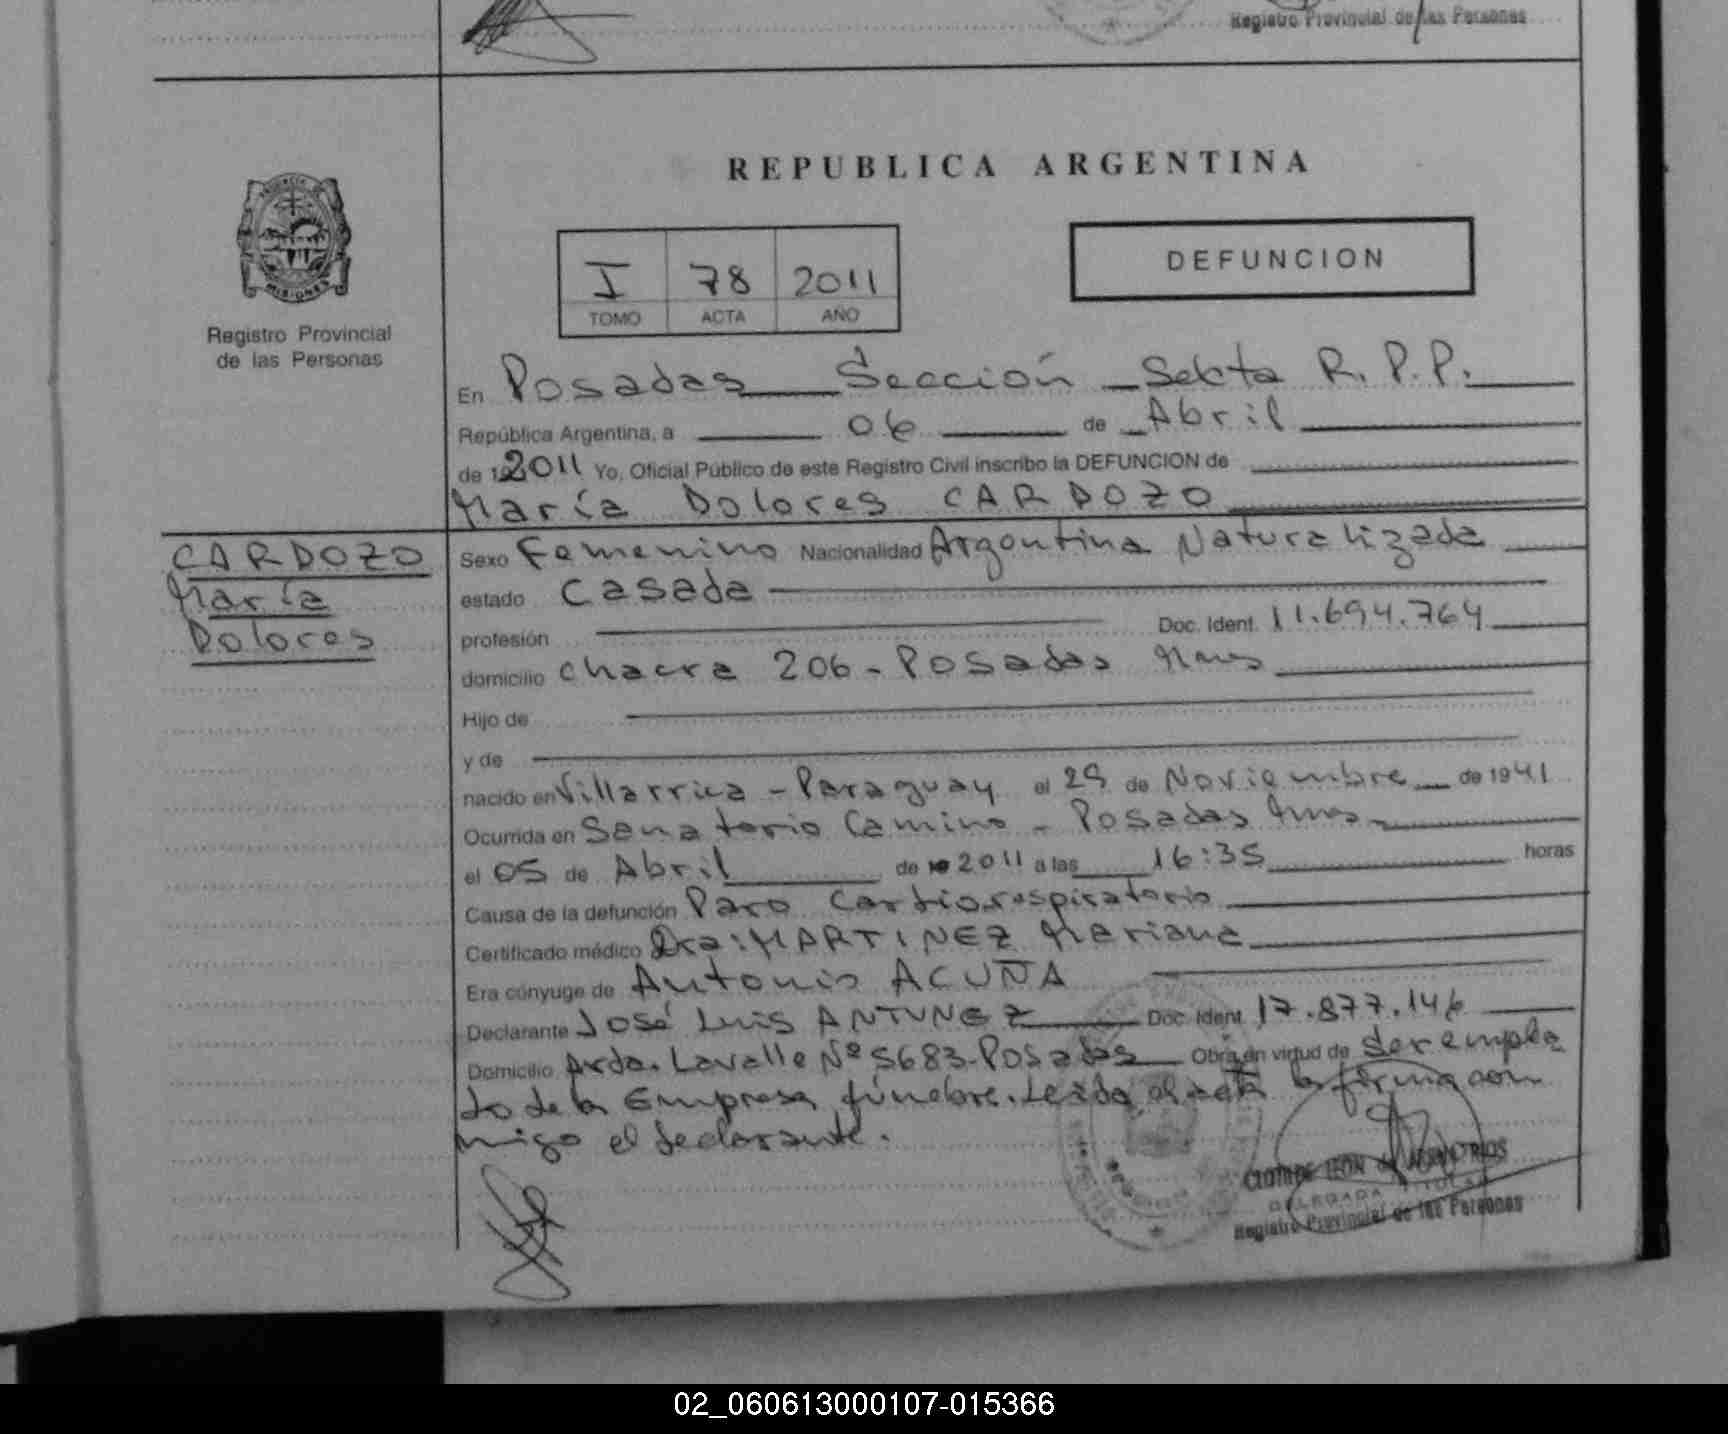 Registro Provincial de las Personas
REPUBLICA ARGENTINA
MISIONES
Registro Provincial
de las Personas
I 78 2011
TOMO ACTA AÑO
DEFUNCION
En Posadas Sección Sexta R.P.P.
República Argentina, a 06 de Abril
de 2011 Yo, Oficial Público de este Registro Civil inscribo la DEFUNCION de
María Dolores CARDOZO
CARDOZO
María
Dolores
Sexo Femenino Nacionalidad Argentina Naturalizada
estado Casada
profesión Doc. Ident. 11.694.764
domicilio Chacra 206 - Posadas Mnes
Hijo de
y de
nacido en Villarrica - Paraguay el 29 de Noviembre de 1941
Ocurrida en Sanatorio Camino - Posadas Mnes -
el 05 de Abril de 2011 a las 16:35 horas
Causa de la defunción Paro Cardiorespiratorio
Certificado médico Dra: MARTINEZ Mariana
Era cónyuge de Antonio ACUÑA
Declarante José Luis ANTUNEZ Doc. Ident. 17.877.146
Domicilio Avda. Lavalle Nº 5683-Posadas Obra en virtud de ser emplea
do de la Empresa fúnebre. Leída el acta la firma con
migo el declarante.
DELEGADA TITULAR
Registro Provincial de las Personas
02_060613000107-015366